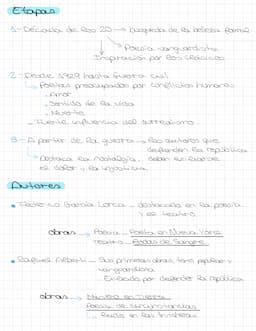 Etapas
1- Década de los 20 → búsqueda de la belleza formal
→ Poesía vanguardista
Inspiración por los clásicos
2- Desde 1929 hasta Guerra civil
↳ Poetas preocupados por conflictos humanos
· Amor
· Sentido de la vida
· Muerte
· Fuerte influencia del surrealismo
3- A partir de la guerra → los autores que
defienden la república
↳ Destaca la nostalgia, deben exiliarse
el dolor y la injusticia
Autores
• Federico García Lorca → destacado en la poesía
y el teatro
obras → Poesía → Poeta en Nueva York
Teatro → Bodas de Sangre
• Rafael Alberti → Sus primeras obras, tono popular y
vanguardista
· Exiliado por defender la república
obras → Marinero en tierra
Poesía de circunstancias